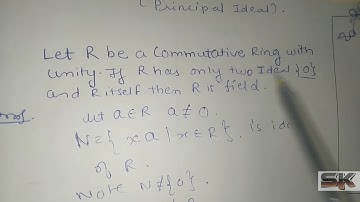 (Principal Ideal).
Let R be a Commutative Ring with
unity. If R has only two Ideal {0}
and R itself then R is field.
Proof. let a∈R a≠0.
N={xa | x∈R}, is ide
of R.
Note N≠{0}.
SK